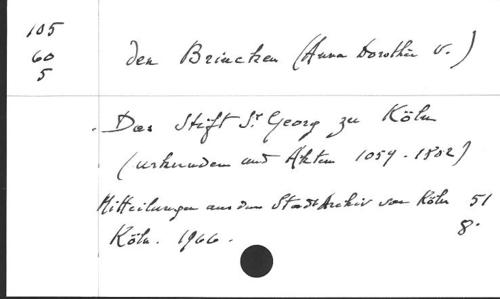 105
60
5
den Brincken (Anna Dorothée v.)
Das Stift St Georg zu Köln
(Urkunden und Akten 1059-1802)
Mitteilungen aus dem StadtArchiv von Köln 51
Köln. 1966. 8°